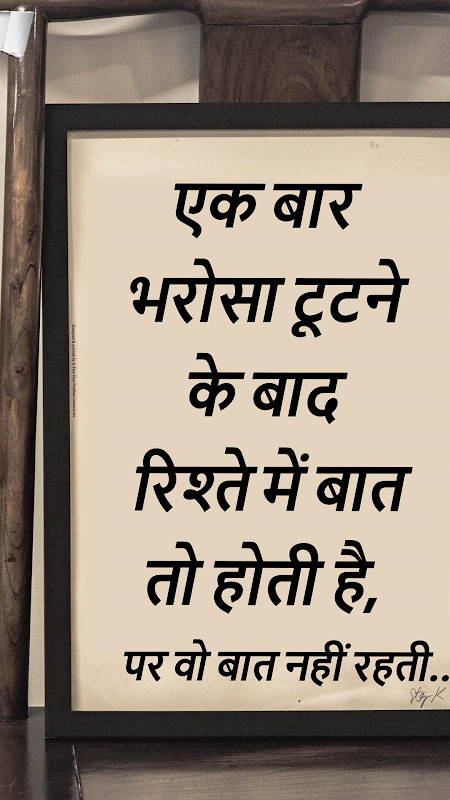 एक बार
भरोसा टूटने
के बाद
रिश्ते में बात
तो होती है,
पर वो बात नहीं रहती..